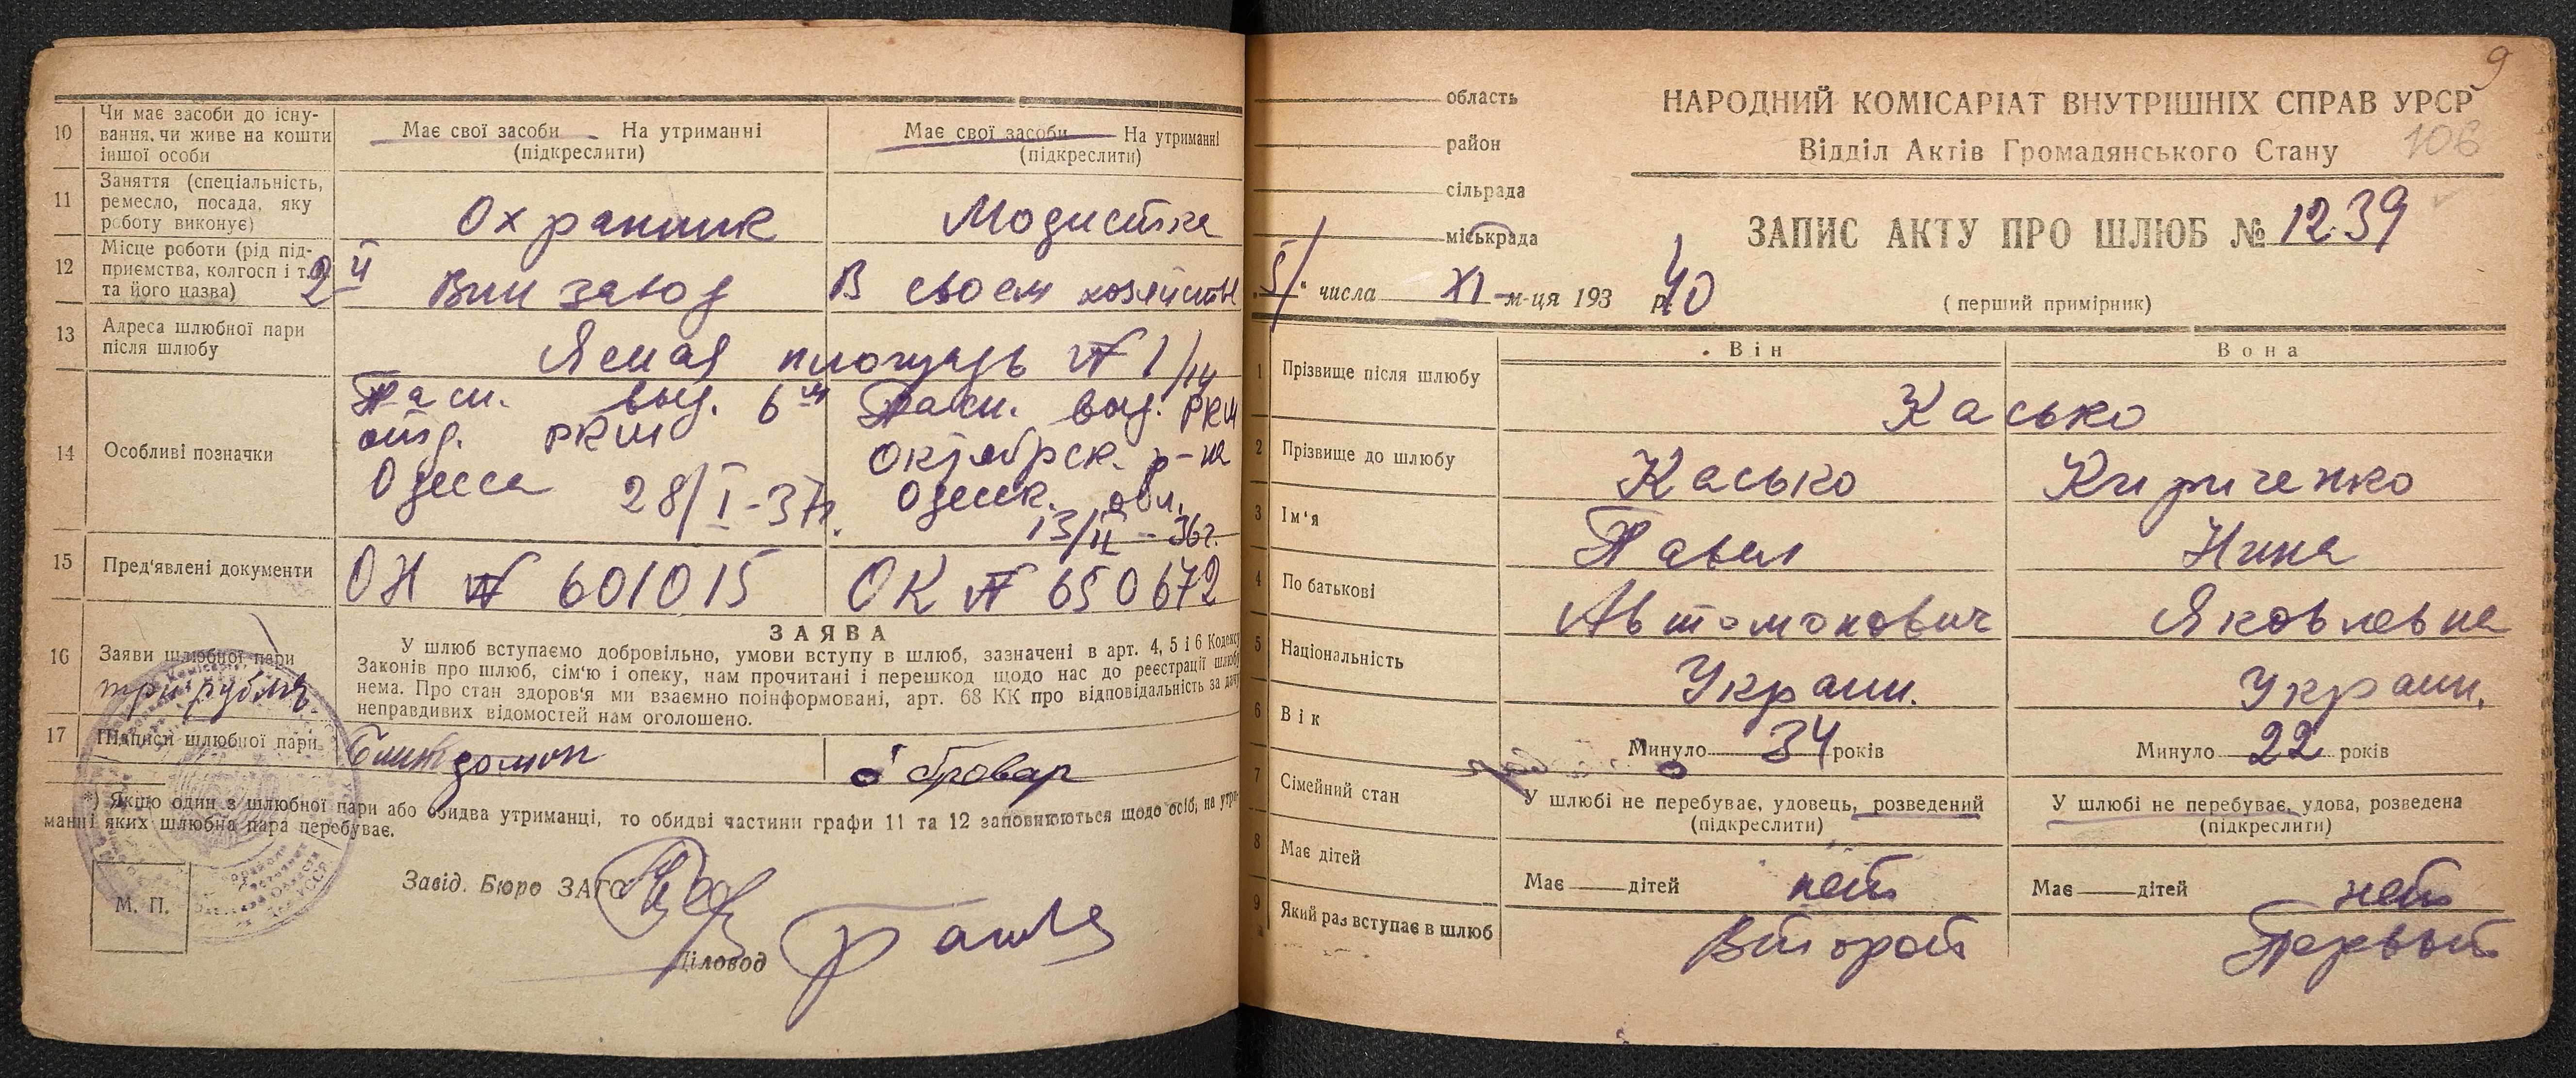 10 Чи має засоби до існу-
вання, чи живе на кошти
іншої особи
Має свої засоби На утриманні
(підкреслити)
Має свої засоби На утриманні
(підкреслити)
11 Заняття (спеціальність,
ремесло, посада, яку
роботу виконує)
Охранник
Модистка
12 Місце роботи (рід під-
приємства, колгосп і т.
та його назва)
2й Винзавод
В своем хозяйстве
13 Адреса шлюбної пари
після шлюбу
площадь № 1/14
14 Особливі позначки
Пасп. выд. 6м
отд. РКМ
Одесса 28/I-37г.
Пасп. выд. РКМ
Октябрск. р-на
Одесск. обл.
13/II-36г.
15 Пред'явлені документи
ОН № 601015
ОК № 650672
16 Заяви шлюбної пари
три рубля
ЗАЯВА
У шлюб вступаємо добровільно, умови вступу в шлюб, зазначені в арт. 4, 5 і 6 Кодексу
Законів про шлюб, сім'ю і опеку, нам прочитані і перешкод щодо нас до реєстрації шлюбу
нема. Про стан здоров'я ми взаємно поінформовані, арт. 68 КК про відповідальність за дачу
неправдивих відомостей нам оголошено.
17 Підписи шлюбної пари
*) Якщо один з шлюбної пари або обидва утриманці, то обидві частини графи 11 та 12 заповнюються щодо осіб, на утри-
манні яких шлюбна пара перебуває.
Завід. Бюро ЗАГС
М. П.
Діловод
9
область
район
сільрада
міськрада
НАРОДНИЙ КОМІСАРІАТ ВНУТРІШНІХ СПРАВ УРСР
Відділ Актів Громадянського Стану
106
ЗАПИС АКТУ ПРО ШЛЮБ № 1239
"5" числа XI м-ця 193 р. 40
(перший примірник)
Він Вона
1 Прізвище після шлюбу
Касько
2 Прізвище до шлюбу
Касько
Кириченко
3 Ім'я
Павел
Нина
4 По батькові
Автомонович
Яковлевна
5 Національність
Украин.
Украин.
6 Вік
Минуло 34 років
Минуло 22 років
7 Сімейний стан
У шлюбі не перебуває, удовець, розведений
(підкреслити)
У шлюбі не перебуває, удова, розведена
(підкреслити)
8 Має дітей
Має дітей нет
Має дітей нет
9 Який раз вступає в шлюб
Второй
Первый